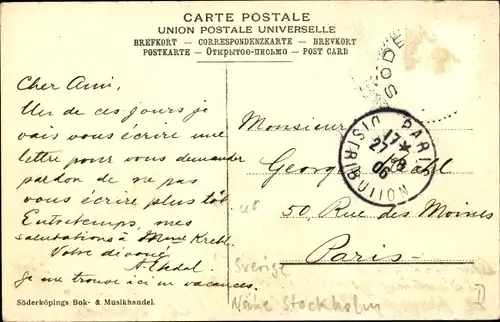 CARTE POSTALE
UNION POSTALE UNIVERSELLE
BREFKORT — CORRESPONDENZKARTE — BREVKORT
POSTKARTE — Открытое-письмо — POST CARD
Cher Ami,
Un de ces jours je
vais vous écrire une
lettre pour vous demander
pardon de ne pas
vous écrire plus tôt
Entretemps, mes
salutations à Mme Krebl
Votre
A.
je me trouve ici en vacances.
SÖDE
PARIS
17
27 8
06
DISTRIBUTION
Monsieur
Georges
50, Rue des Moines
Paris
Sverige
Nähe Stockholm
Söderköpings Bok- & Musikhandel.